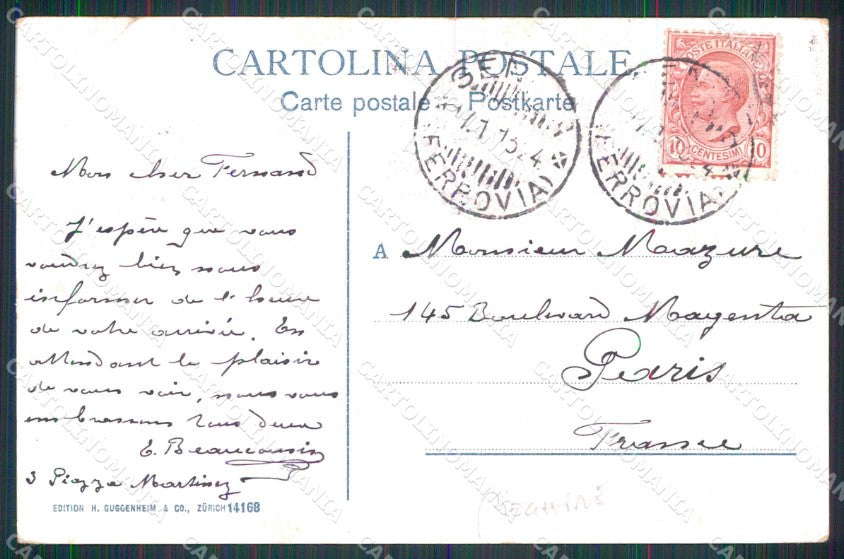 CARTOLINA POSTALE
Carte postale - Postkarte
Mon cher Fernand
J'espère que vous
voudrez bien nous
informer de l'heure
de votre arrivée. En
attendant le plaisir
de vous voir, nous vous
embrassons tous deux
E. Beaucousin
3 Piazza Martinez
EDITION H. GUGGENHEIM & CO., ZÜRICH 14168
(FERROVIA)
(FERROVIA)
POSTE ITALIANE
10 CENTESIMI 10
A Monsieur Mazure
145 Boulevard Magenta
Paris
France
CARTOLINOMANIA